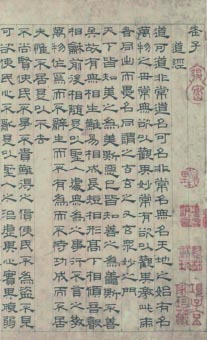 老子
道經
道可道非常道名可名非常名無名天地之始有名
萬物之母常無欲以觀其妙常有欲以觀其徼此兩
者同出而異名同謂之玄玄之又玄衆妙之門
天下皆知美之為美斯惡已皆知善之為善斯不善
矣故有無相生難易相成長短相形高下相傾音聲
相和前後相隨是以聖人處無為之事行不言之教
萬物作焉而不辭生而不有為而不恃功成而不居
夫惟不居是以不去
不尚賢使民不爭不貴難得之貨使民不為盜不見
可欲使民心不亂是以聖人之治虛其心實其腹弱